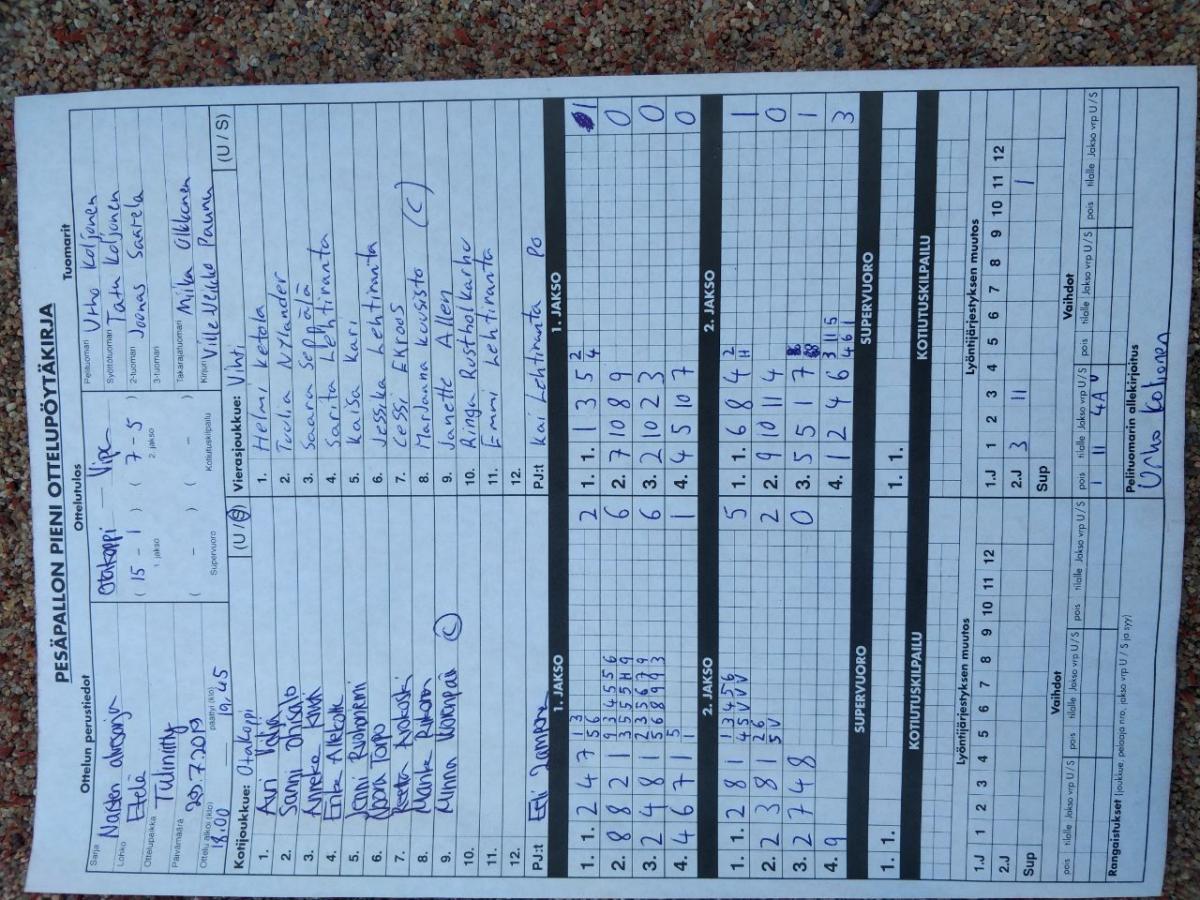 PESÄPALLON PIENI OTTELUPÖYTÄKIRJA
Ottelun perustiedot
Ottelutulos
Tuomarit
Sarja Naisten aluesarja
Lohko Etelä
Ottelupaikka Tuulimylly
Päivämäärä 20.7.2019
Ottelu alkoi (klo) 18.00 päättyi (klo) 19.45
Otakoppi – Vipe
( 15 - 1 ) ( 7 - 5 )
1. jakso 2. jakso
( - ) ( - )
Supervuoro Kotiutuskilpailu
Pelituomari Urho Koljonen
Syöttötuomari Tatu Koljonen
2-tuomari Joonas Saarela
3-tuomari
Takarajatuomari Mika Ulkkanen
Kirjuri Ville-Veikko Paunu
Kotijoukkue: Otakoppi (U/S)
1. Auri
2. Sanni Ohisalo
3. Anneka
4. Erika
5. Jenni
6. Noora Torpo
7. Reetta
8. Marika
9. Minna (C)
10.
11.
12.
PJ:t
Vierasjoukkue: Vihti (U/S)
1. Helmi Ketola
2. Tuulia Nylander
3. Saara Seppälä
4. Sarita Lehtiranta
5. Kaisa Kari
6. Jessika Lehtiranta
7. Cessi Ekroos
8. Marjanna Kuusisto (C)
9. Janette Allen
10. Ringa Rustholkarhu
11. Emmi Lehtiranta
12.
PJ:t Kai Lehtiranta Po
1. JAKSO
1. JAKSO
1. 1. 2 4 7 1 3 2
5 6
2. 8 8 2 1 9 3 4 5 5 6 6
3 5 5 5 H 9
3. 2 4 8 1 2 3 5 6 7 9 6
5 6 8 9 9 3
4. 4 6 7 1 5 1
1
1. 1. 1 3 5 2 1
4
2. 7 10 8 9 0
3. 2 10 2 3 0
4. 4 5 10 7 0
2. JAKSO
2. JAKSO
1. 1. 2 8 1 1 3 4 5 6 5
4 5 V V V
2. 2 3 8 1 2 6 2
5 V
3. 2 7 4 8 0
4. 9
1. 1. 6 8 4 2 1
H
2. 9 10 11 4 0
3. 5 5 1 7 1
4. 1 2 4 6 3 11 5 3
4 6 1
SUPERVUORO
SUPERVUORO
1. 1.
1. 1.
KOTIUTUSKILPAILU
KOTIUTUSKILPAILU
Lyöntijärjestyksen muutos
Lyöntijärjestyksen muutos
1.J 1 2 3 4 5 6 7 8 9 10 11 12
2.J
Sup
1.J 1 2 3 4 5 6 7 8 9 10 11 12
2.J 3 11 1
Sup
Vaihdot
Vaihdot
pois tilalle Jakso vrp U/S pois tilalle Jakso vrp U/S pois tilalle Jakso vrp U/S
pois tilalle Jakso vrp U/S pois tilalle Jakso vrp U/S pois tilalle Jakso vrp U/S
1 11 4A U
Rangaistukset (joukkue, pelaaja nro, jakso vrp U / S ja syy)
Pelituomarin allekirjoitus
Urho Koljonen